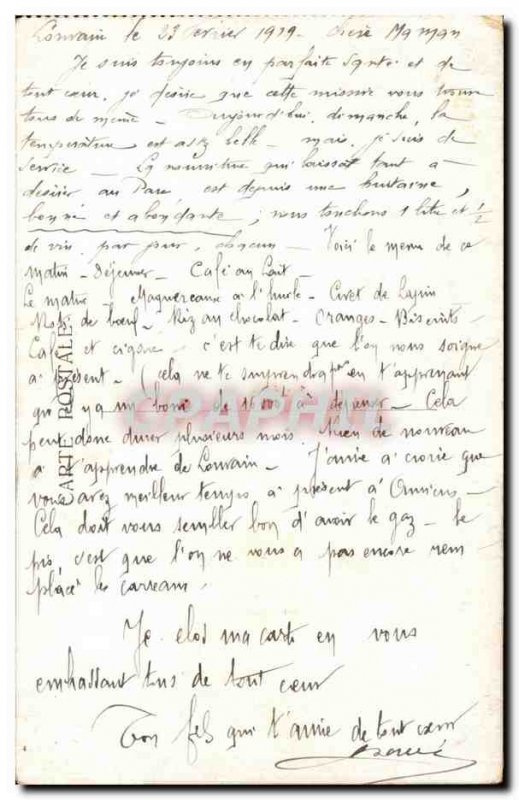 Louvain le 23 février 1919 - Chère Maman
Je suis toujours en parfaite santé et de
tout cœur, je désire que cette missive vous trouve
tous de même - Aujourd'hui, dimanche, la
température est assez belle - mais, je suis de
service - La nourriture qui laissait tant à
désirer au Parc est depuis une huitaine,
bonne et abondante ; nous touchons 1 litre et 1/2
de vin par jour, chacun - Voici le menu de ce
matin - Déjeuner - Café au Lait -
Maquereaux à l'huile - Civet de Lapin
de bœuf - Riz au chocolat - Oranges - Biscuits
Café et cigare - c'est te dire que l'on nous soigne
à présent - (Cela ne te surprendra pas en t'apprenant
qu'il y a un boni de à dépenser - Cela
peut donc durer plusieurs mois. Rien de nouveau
à t'apprendre de Louvain - J'aime à croire que
vous avez meilleur temps à présent à Amiens -
Cela doit vous sembler bon d'avoir le gaz - Le
pis, c'est que l'on ne vous a pas encore rem
placé les carreaux.
Je clos ma carte en vous
embrassant tous de tout cœur
Ton fils qui t'aime de tout cœur
CARTE POSTALE
CPAPHIL